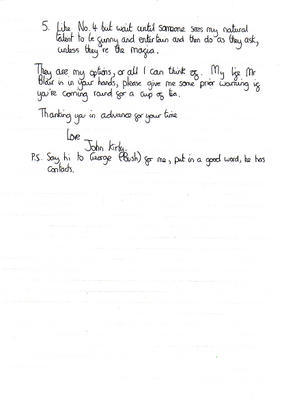 5. Like No. 4 but wait until someone sees my natural
talent to be funny and entertain and then do as they ask,
unless they're the mafia.
They are my options, or all I can think of. My life Mr
Blair is in your hands, please give me some prior warning if
you're coming round for a cup of tea.
Thanking you in advance for your time
Love
John Kirby.
P.S. Say hi to George (Bush) for me, put in a good word, he has
contacts.